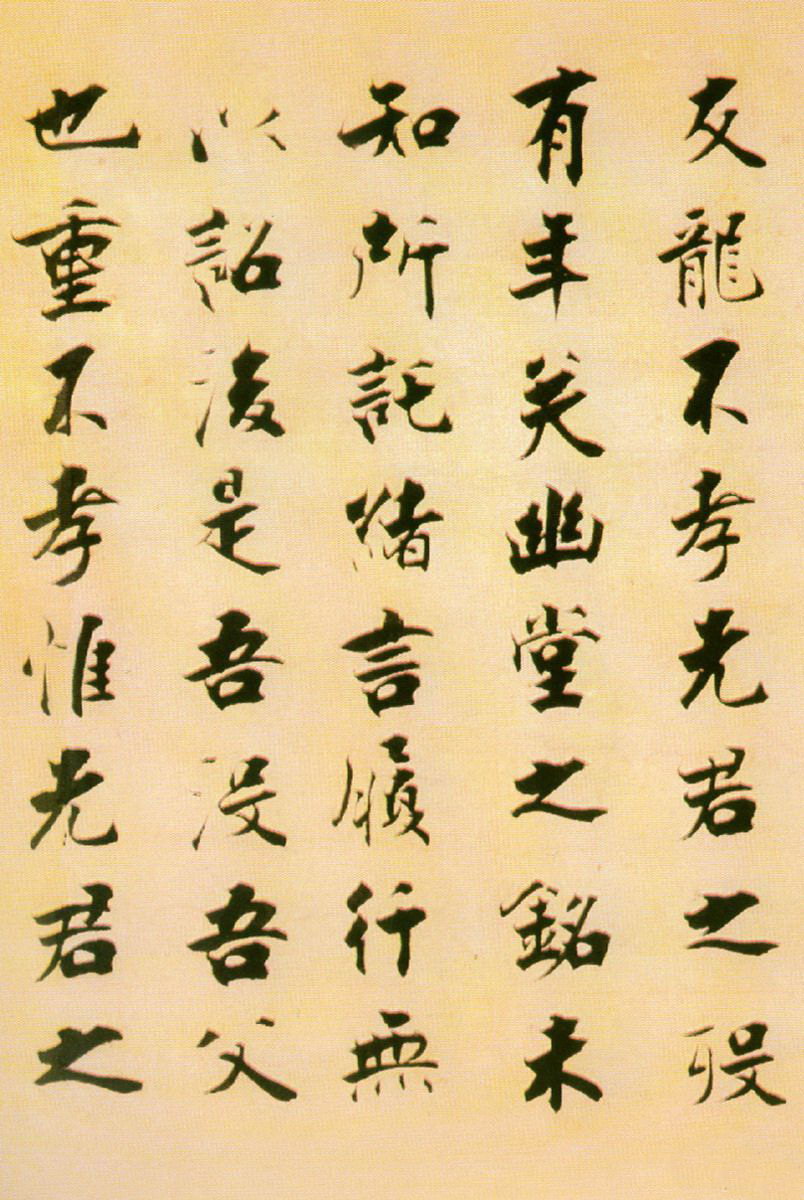 友龍不孝先君之歿
有年矣幽堂之銘未
知所託緒言履行無
以詔後是吾没吾父
也重不孝惟先君之